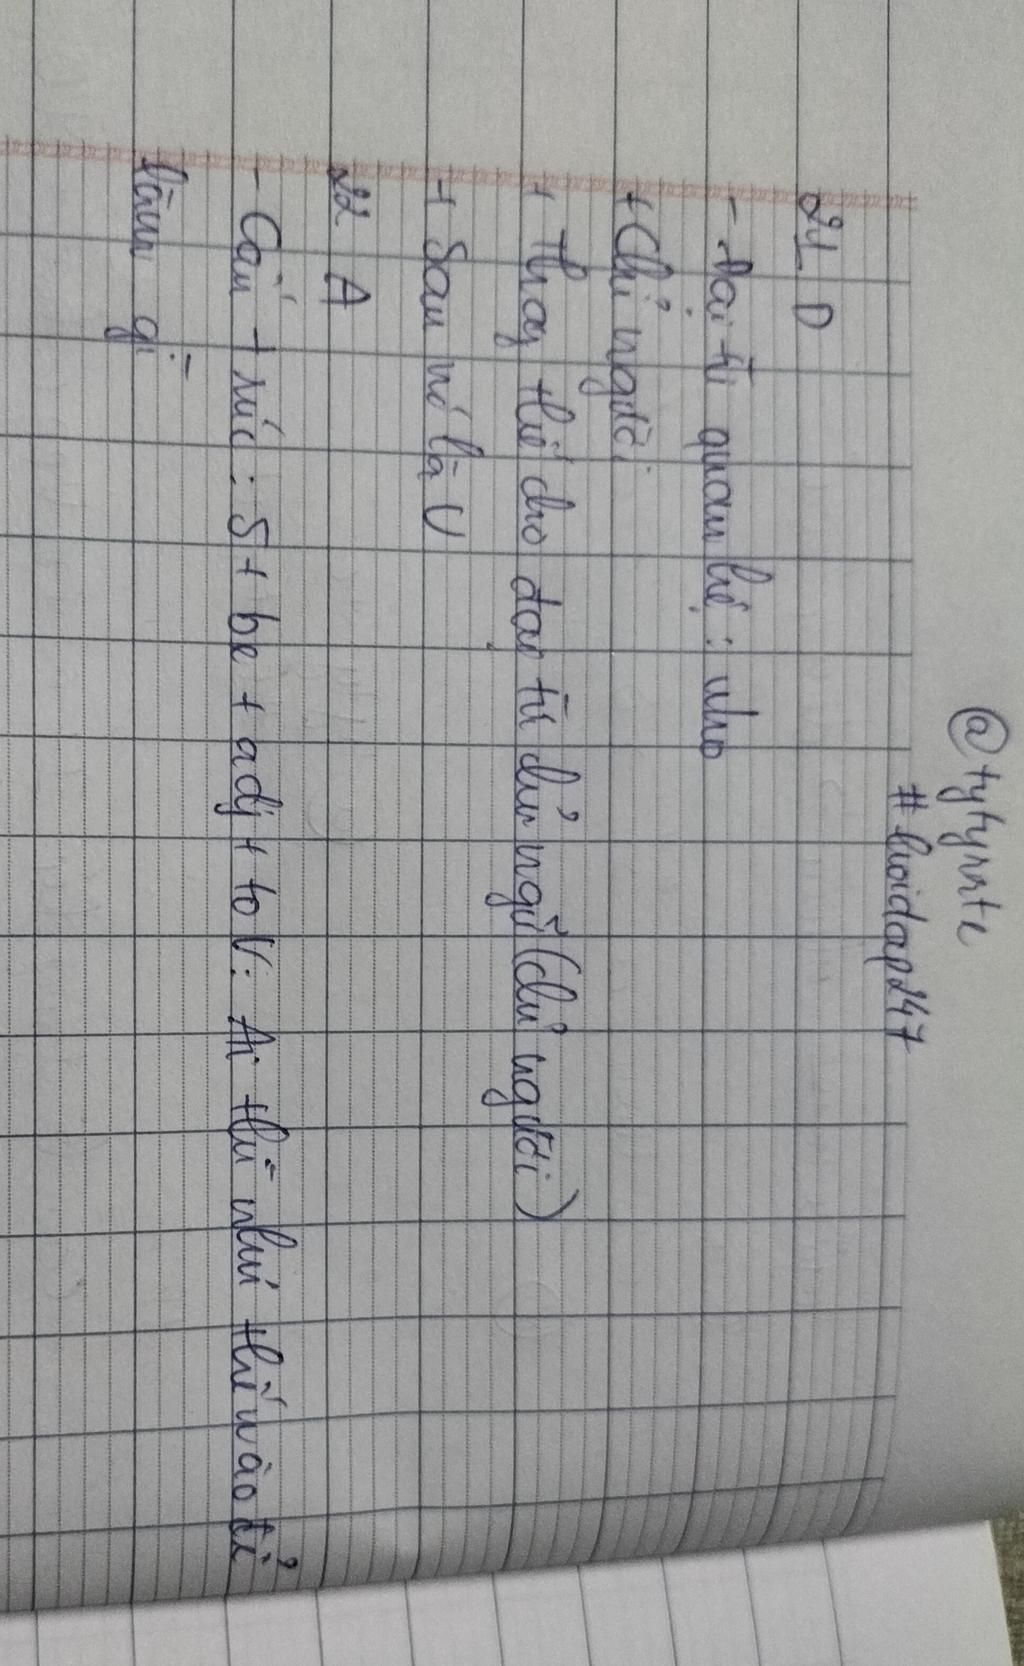 @tytynnte
#hoidap247
21 D
- Đại từ quan hệ : who
+ Chỉ người
+ Thay thế cho đại từ chủ ngữ (chỉ người)
+ Sau nó là V
22 A
- Cấu trúc : S + be + adj + to V : Ai thì như thế nào để
làm gì